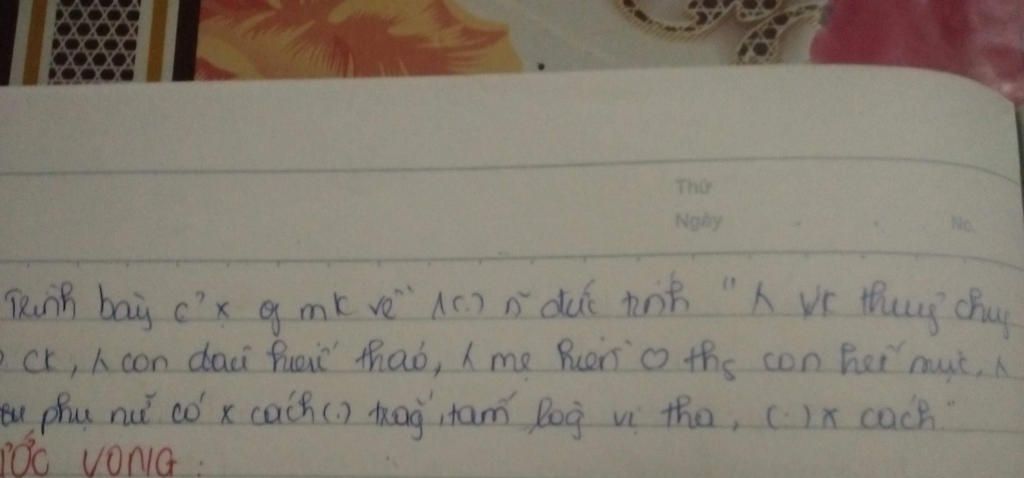 Thứ
Ngày No.
Trình bày c² x of mk về 1(.) n~ đức tính "1 vk thuỷ chug
ck, 1 con dâu hiếu thảo, 1 mẹ hiền th con hết mực, 1
phụ nữ có x cách (.) trag, tấm log vị tha, (.) x cách"
ƯỚC VỌNG: